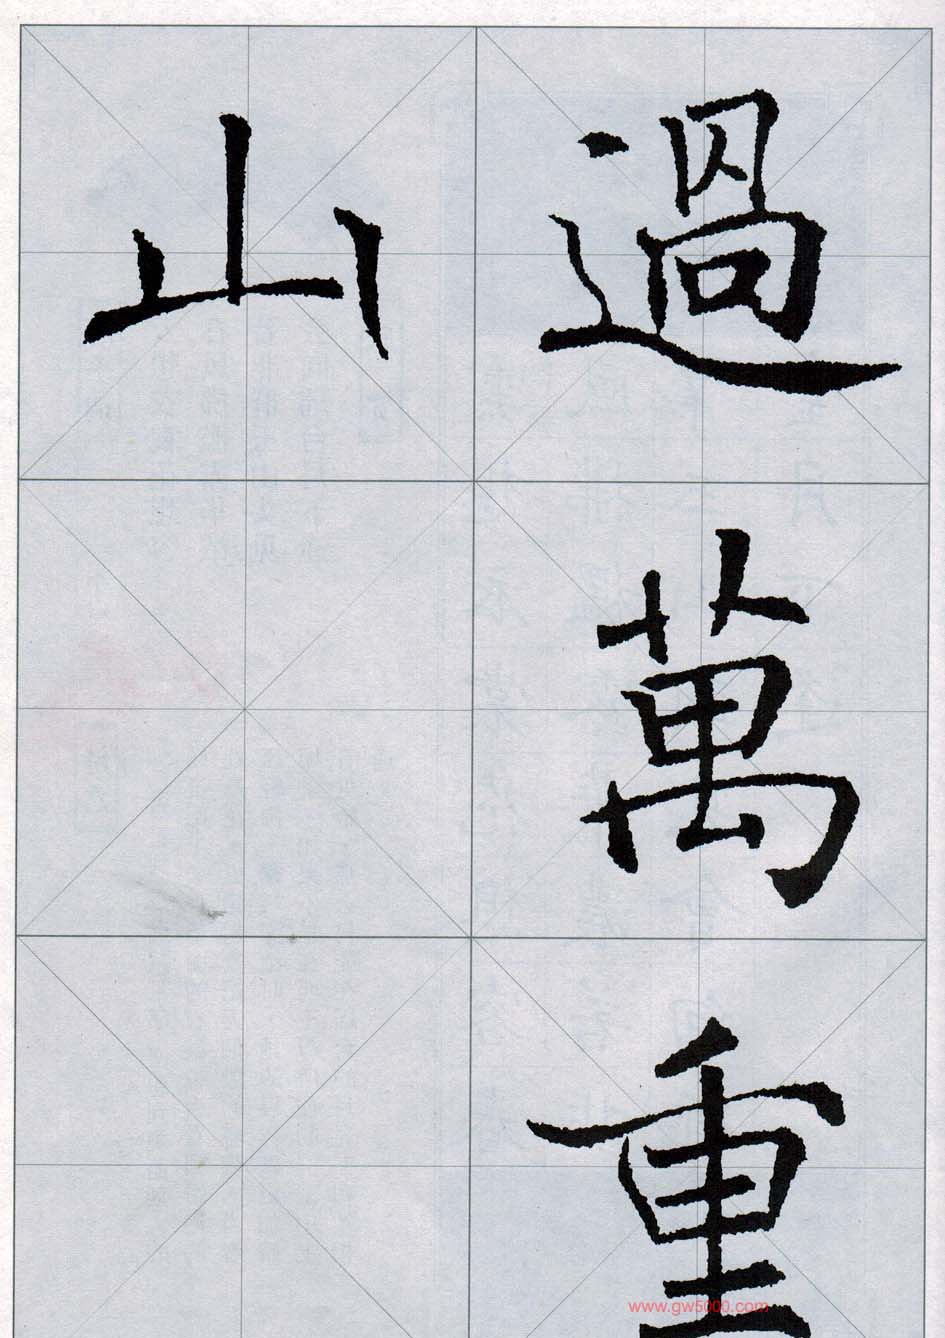 過萬重
山
www.gw5000.com